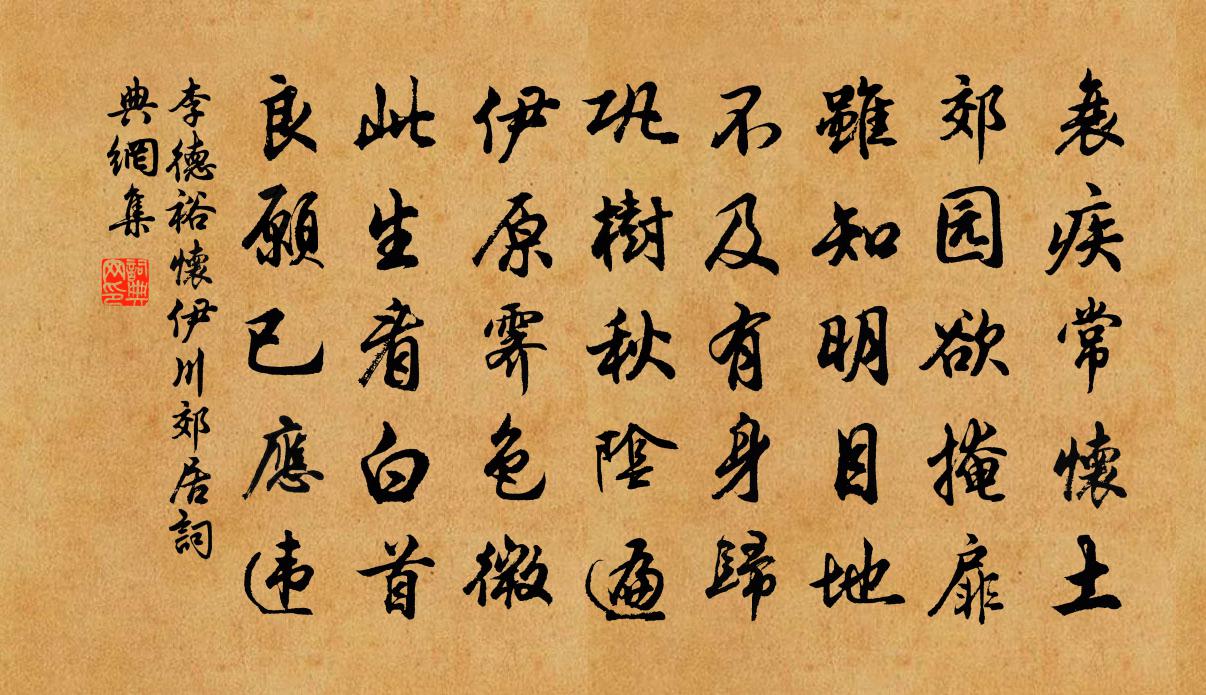 衰疾常懷土
郊园欲掩扉
雖知明目地
不及有身歸
巩樹秋陰遍
伊原霽色微
此生看白首
良願已應違
李德裕懷伊川郊居詞
典網集
詞典
网印